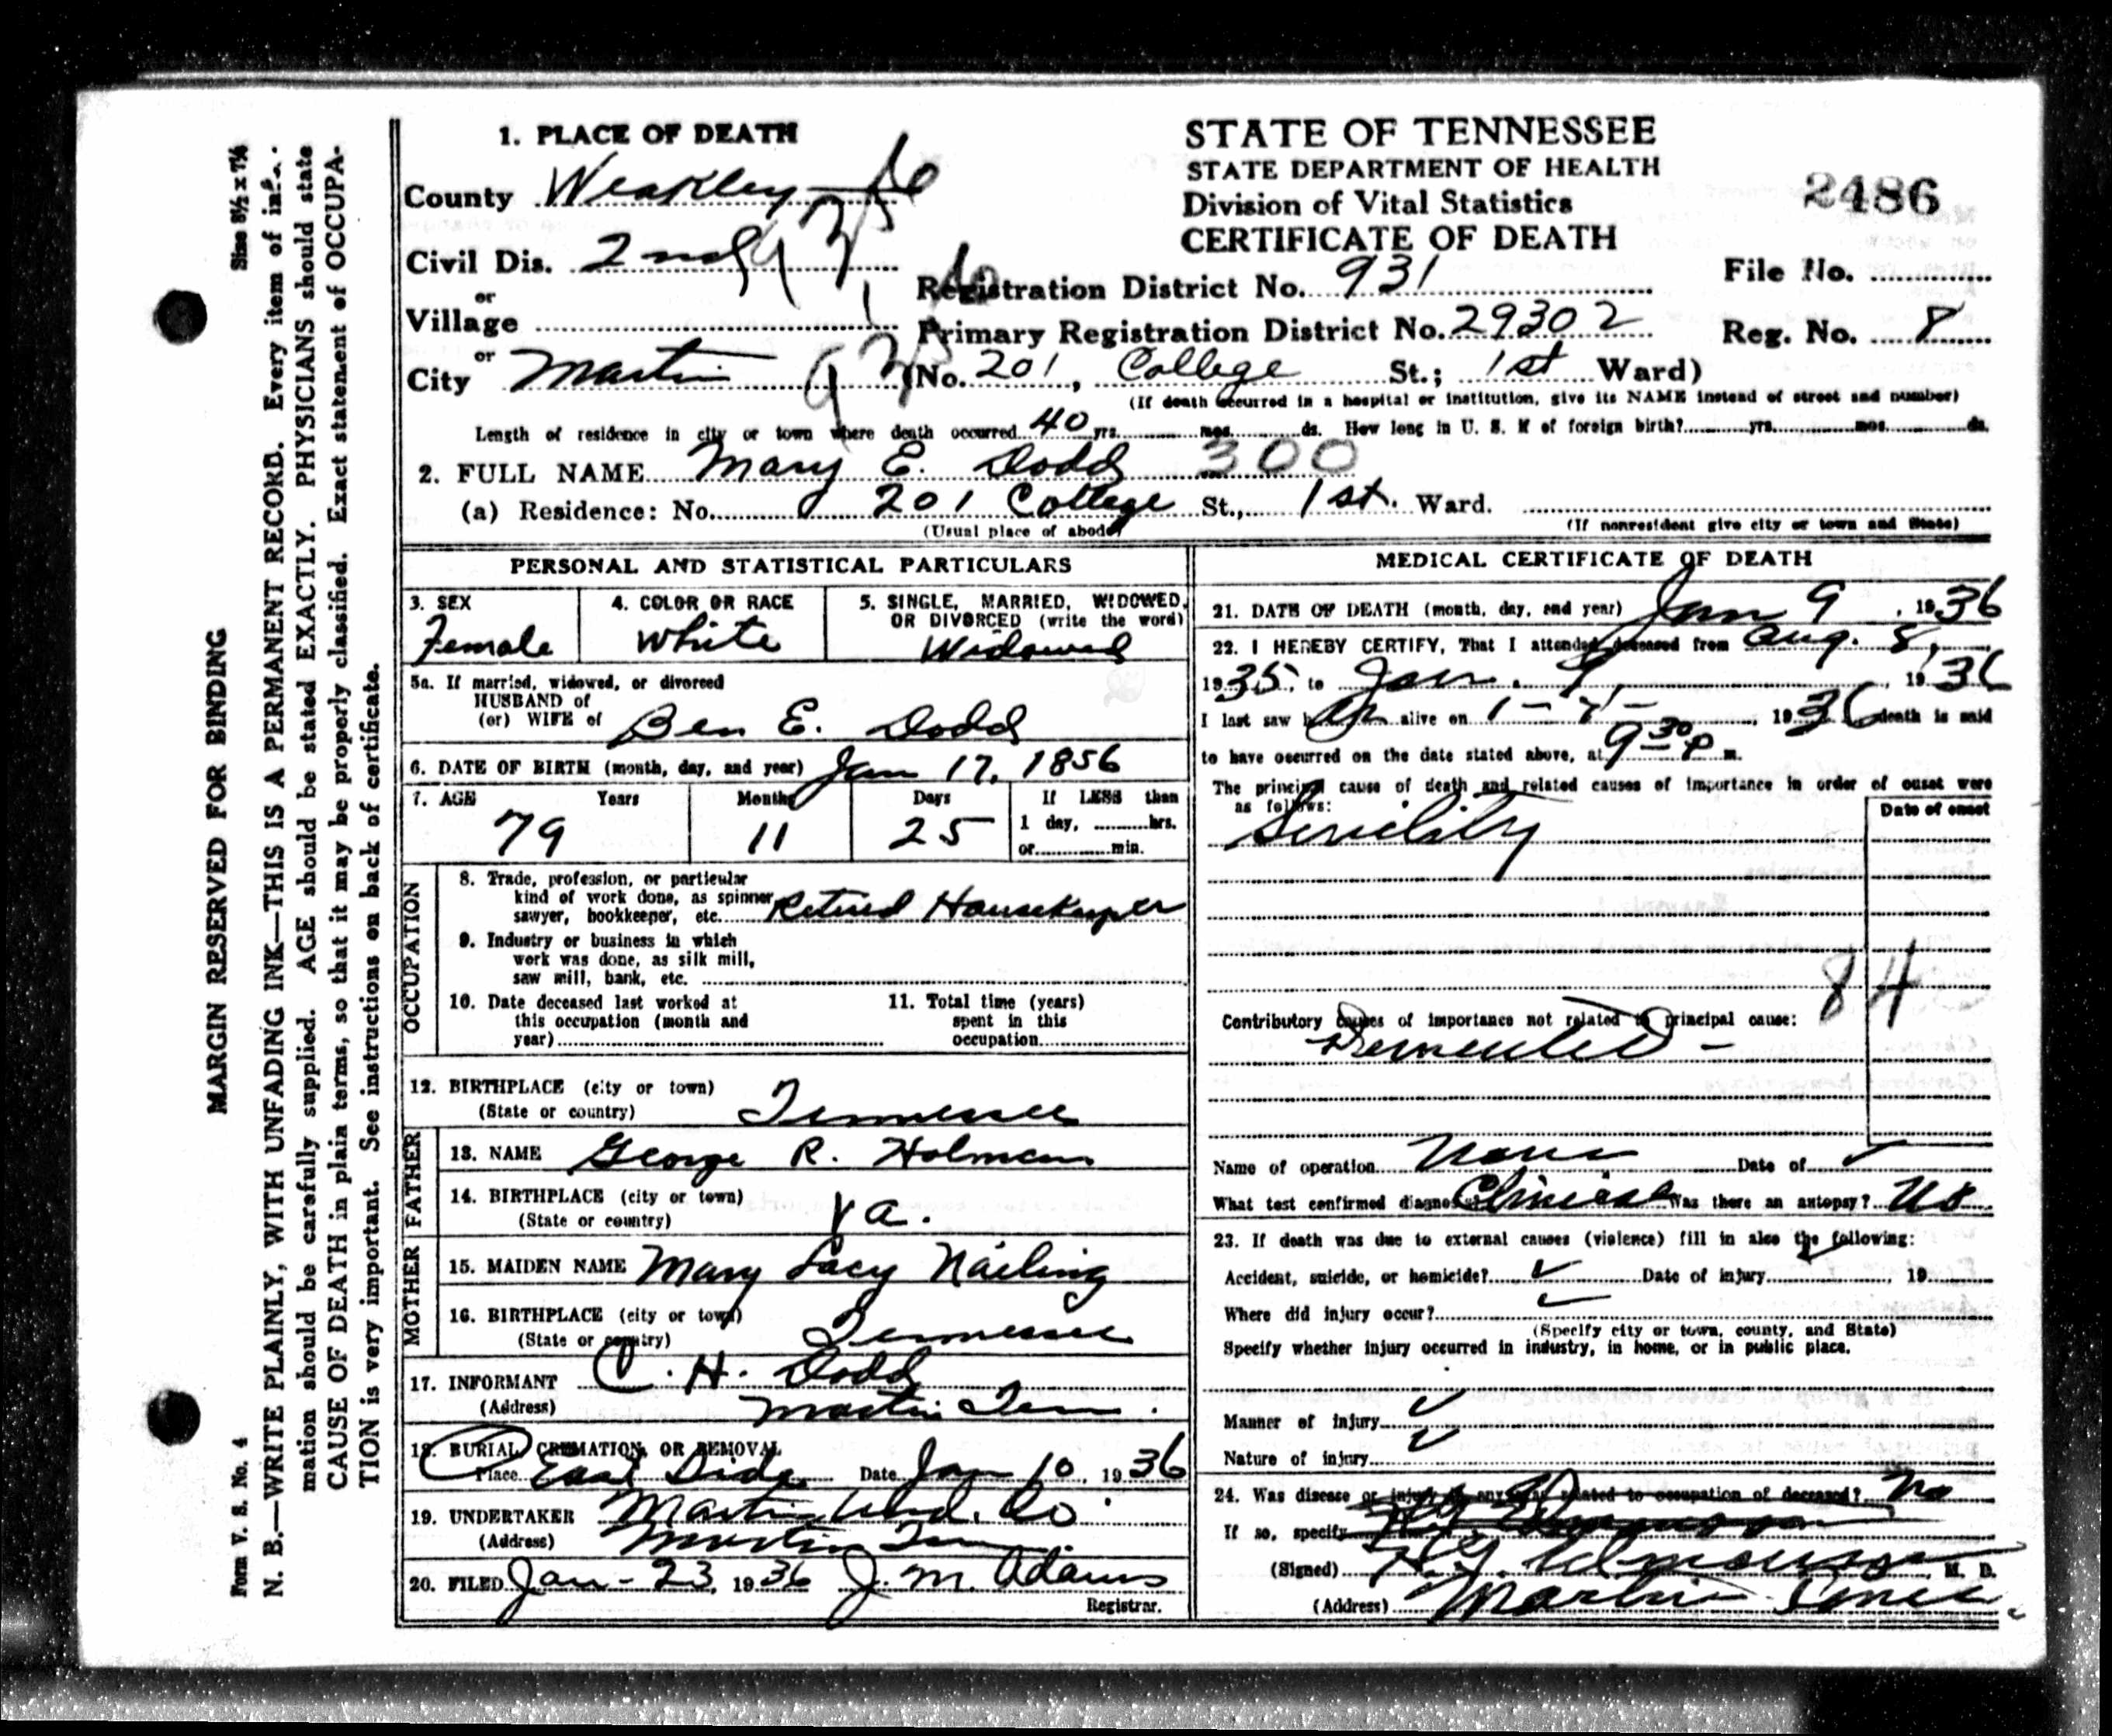 Form V. S. No. 4 MARGIN RESERVED FOR BINDING Size 8½ x 7¼
N. B.—WRITE PLAINLY, WITH UNFADING INK—THIS IS A PERMANENT RECORD. Every item of infor-
mation should be carefully supplied. AGE should be stated EXACTLY. PHYSICIANS should state
CAUSE OF DEATH in plain terms, so that it may be properly classified. Exact statement of OCCUPA-
TION is very important. See instructions on back of certificate.
1. PLACE OF DEATH
County Weakley
Civil Dis. 2nd
or
Village
or
City Martin
STATE OF TENNESSEE
STATE DEPARTMENT OF HEALTH
Division of Vital Statistics
CERTIFICATE OF DEATH
2486
Registration District No. 931
File No.
Primary Registration District No. 29302
Reg. No. 8
(No. 201, College St.; 1st Ward)
(If death occurred in a hospital or institution, give its NAME instead of street and number)
Length of residence in city or town where death occurred 40 yrs. mos. ds. How long in U. S. if of foreign birth? yrs. mos. ds.
2. FULL NAME Mary E. Dodd 300
(a) Residence: No. 201 College St., 1st. Ward.
(Usual place of abode) (If nonresident give city or town and State)
PERSONAL AND STATISTICAL PARTICULARS
3. SEX
Female
4. COLOR OR RACE
White
5. SINGLE, MARRIED, WIDOWED,
OR DIVORCED (write the word)
Widowed
5a. If married, widowed, or divorced
HUSBAND of
(or) WIFE of Ben E. Dodd
6. DATE OF BIRTH (month, day, and year) Jan 17, 1856
7. AGE Years Months Days If LESS than
79 11 25 1 day, hrs.
or min.
OCCUPATION
8. Trade, profession, or particular
kind of work done, as spinner,
sawyer, bookkeeper, etc. Retired Housekeeper
9. Industry or business in which
work was done, as silk mill,
saw mill, bank, etc.
10. Date deceased last worked at
this occupation (month and
year)
11. Total time (years)
spent in this
occupation
12. BIRTHPLACE (city or town)
(State or country) Tennessee
FATHER
13. NAME George R. Holman
14. BIRTHPLACE (city or town)
(State or country) Va.
MOTHER
15. MAIDEN NAME Mary Lacy Nailing
16. BIRTHPLACE (city or town)
(State or country) Tennessee
17. INFORMANT C. H. Dodd
(Address) Martin Tenn.
18. BURIAL, CREMATION, OR REMOVAL
Place East Side Date Jan 10, 1936
19. UNDERTAKER Martin Und. Co.
(Address) Martin Tenn
20. FILED Jan-23, 1936 J. M. Adams
Registrar.
MEDICAL CERTIFICATE OF DEATH
21. DATE OF DEATH (month, day, and year) Jan 9, 1936
22. I HEREBY CERTIFY, That I attended deceased from Aug. 8,
1935, to Jan. 9, 1936
I last saw her alive on 1-7-, 1936 death is said
to have occurred on the date stated above, at 9:30 P m.
The principal cause of death and related causes of importance in order of onset were
as follows:
Date of onset
Senility
84
Contributory causes of importance not related to principal cause:
Demented -
Name of operation None Date of
What test confirmed diagnosis? Clinical Was there an autopsy? No
23. If death was due to external causes (violence) fill in also the following:
Accident, suicide, or homicide? Date of injury , 19
Where did injury occur?
(Specify city or town, county, and State)
Specify whether injury occurred in industry, in home, or in public place.
Manner of injury
Nature of injury
24. Was disease or injury in any way related to occupation of deceased? No
If so, specify
(Signed) M. D.
(Address) Martin Tenn.